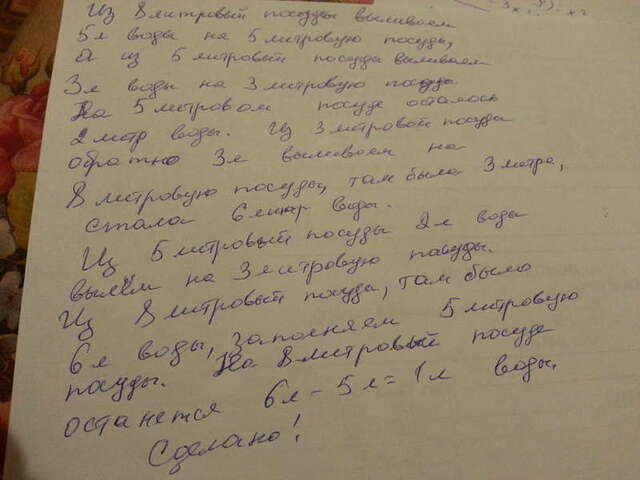 Из 8 литровый посуды выливаем
5л воды на 5 литровую посуду,
а из 5 литровый посуды выливаем
3л воды на 3 литровую посуды
На 5 литровом посуде осталось
2 литр воды. Из 3 литровой посуды
обратно 3л выливаем на
8 литровую посуды, там была 3 литра,
стала 6 литр воды.
Из 5 литровый посуды 2л воды
выльём на 3 литровую посуды.
Из 8 литровый посуды, там было
6л воды, заполняем 5 литровую
посуды. На 8 литровый посуде
останется 6л - 5л = 1л воды.
Сделано!